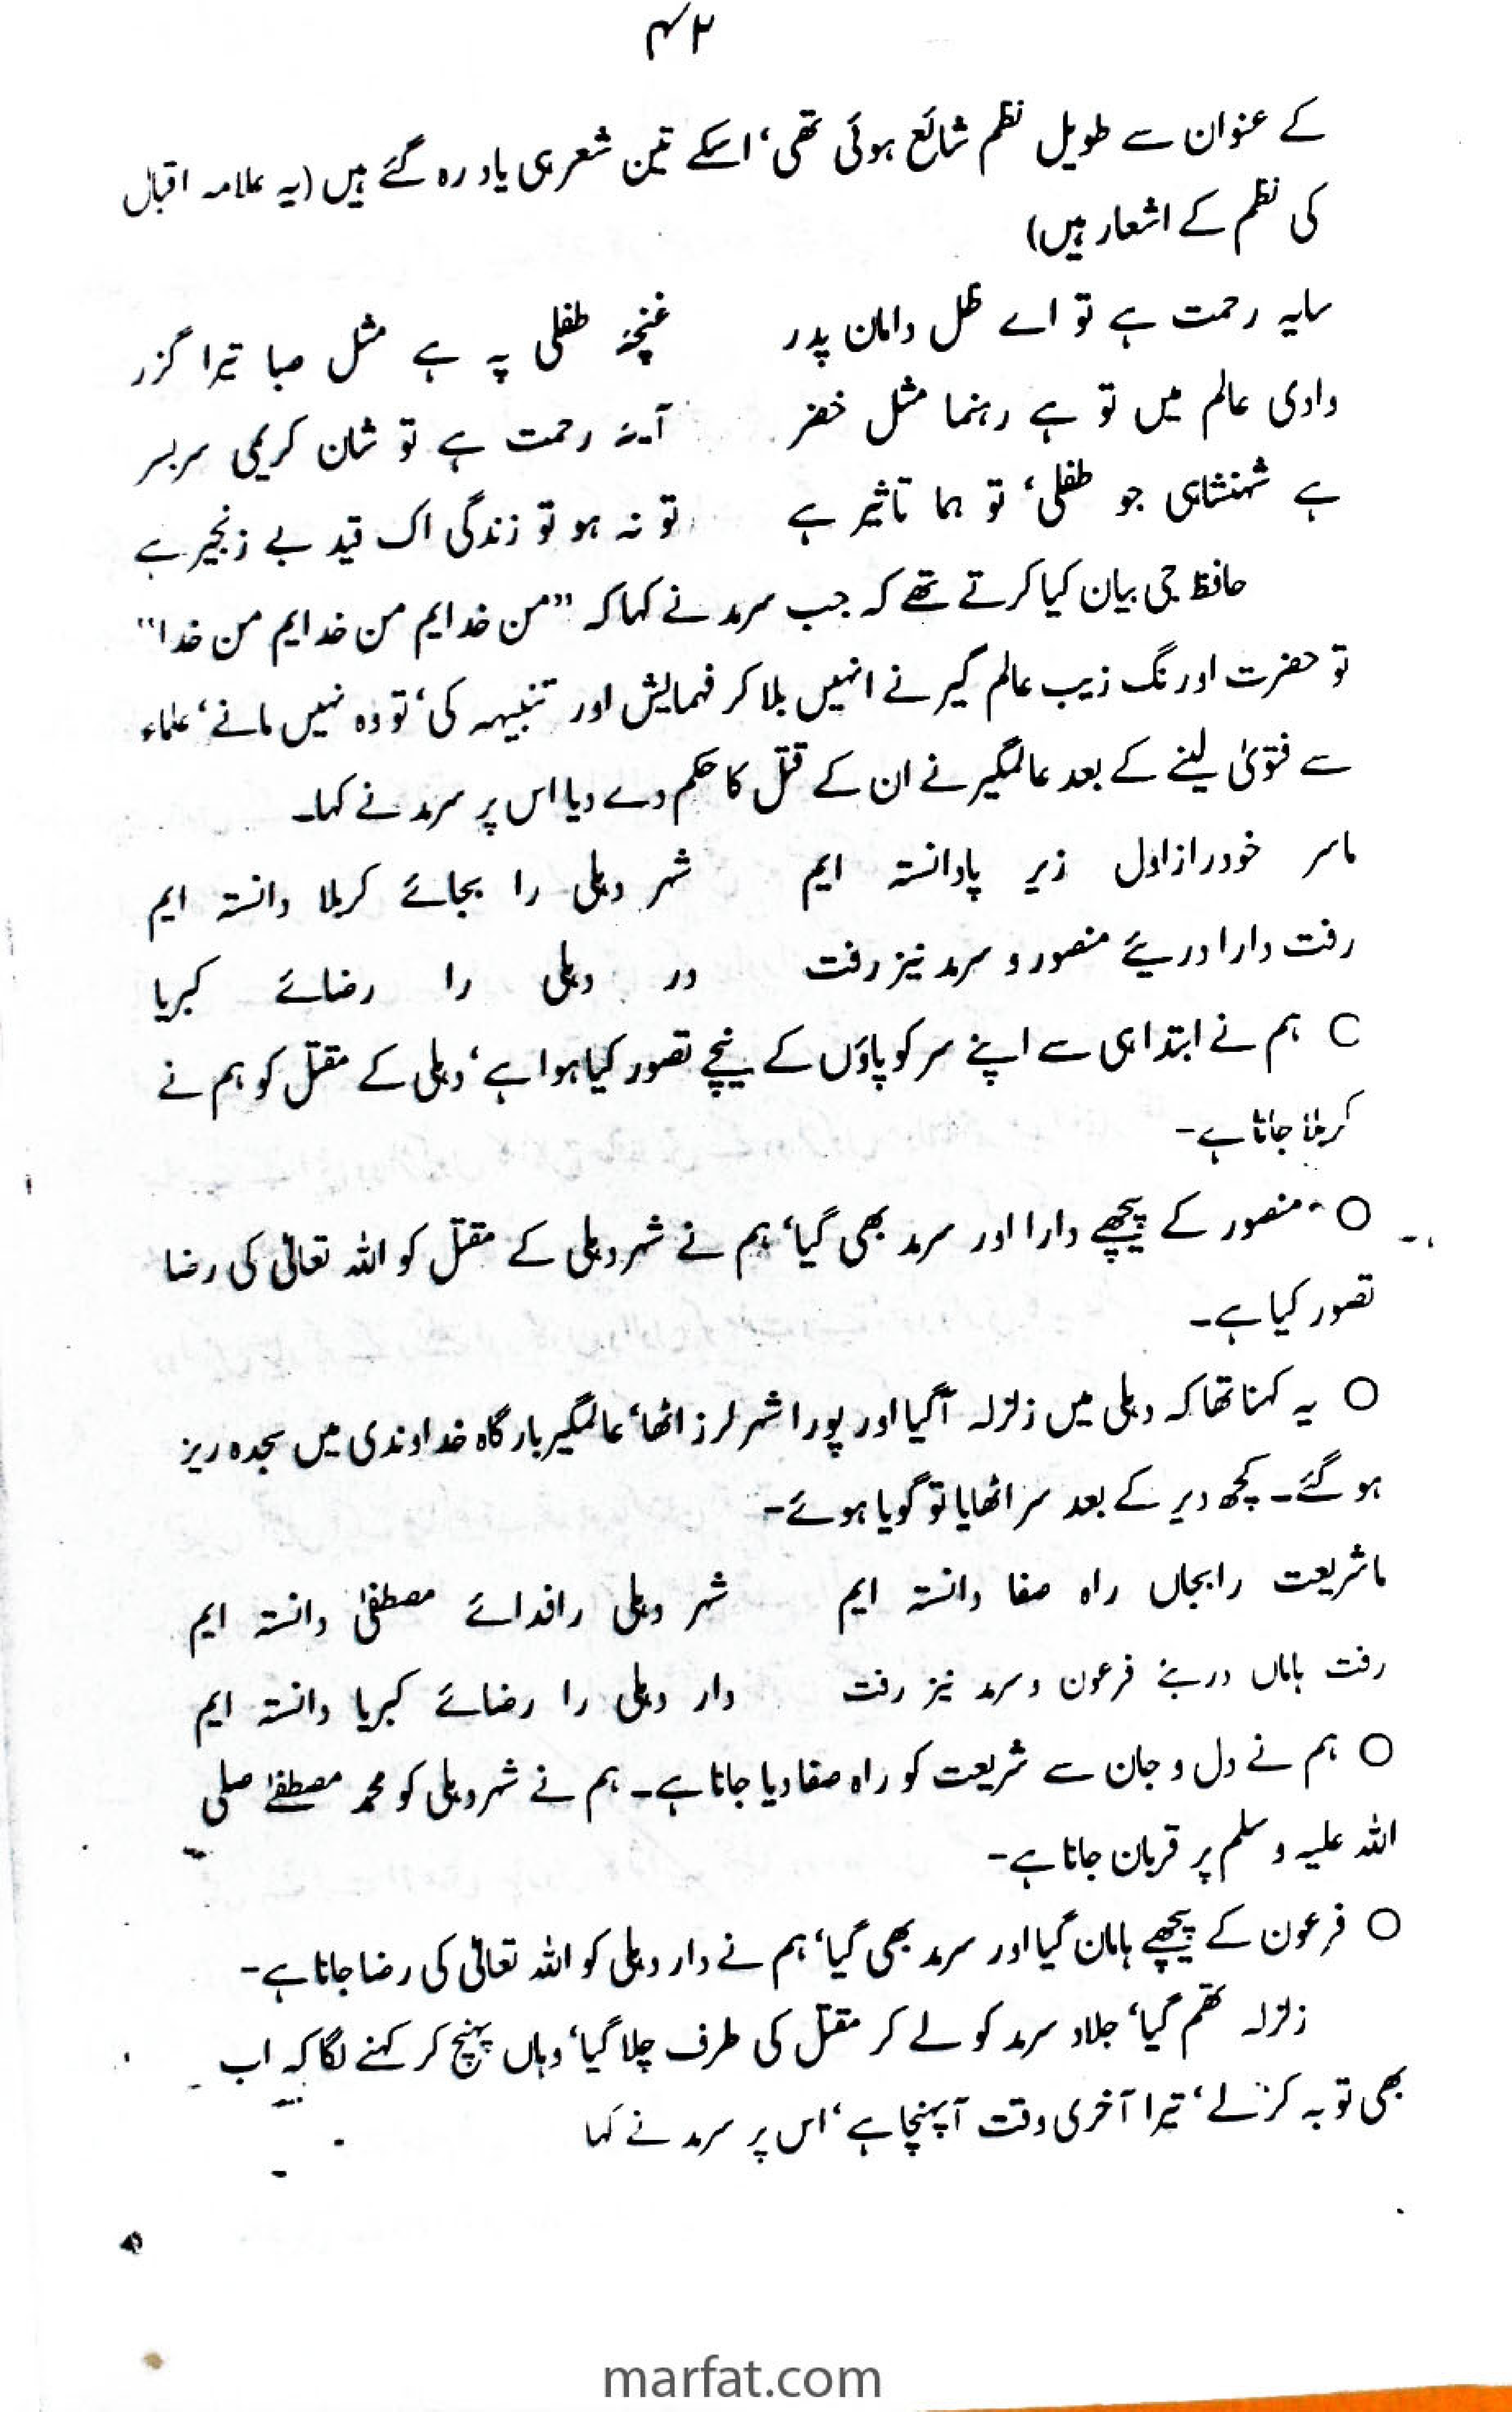 ۴۲
کے عنوان سے طویل نظم شائع ہوئی تھی، اسکے تین شعر ہی یاد رہ گئے ہیں (یہ علامہ اقبال
کی نظم کے اشعار ہیں)
سایہ رحمت ہے تو اے ظل دامان پدر غنچۂ طفلی پہ ہے مثل صبا تیرا گزر
وادی عالم میں تو ہے رہنما مثل خضر آیۂ رحمت ہے تو شان کریمی سربسر
ہے شہنشاہی جو طفلی، تو ہما تاثیر ہے تو نہ ہو تو زندگی اک قید بے زنجیر ہے
حافظ جی بیان کیا کرتے تھے کہ جب سرمد نے کہا کہ ”من خدایم من خدایم من خدا“
تو حضرت اورنگ زیب عالم گیر نے انہیں بلا کر فہمایش اور تنبیہہ کی، تو وہ نہیں مانے، علماء
سے فتویٰ لینے کے بعد عالمگیر نے ان کے قتل کا حکم دے دیا اس پر سرمد نے کہا۔
ماسر خودرا ازاول زیر پادانستہ ایم شہر دہلی را بجائے کربلا دانستہ ایم
رفت دارا درپئے منصور و سرمد نیز رفت در دہلی را رضائے کبریا
ہم نے ابتدا ہی سے اپنے سر کو پاؤں کے نیچے تصور کیا ہوا ہے، دہلی کے مقتل کو ہم نے
کربلا جانا ہے-
○ منصور کے پیچھے دارا اور سرمد بھی گیا، ہم نے شہر دہلی کے مقتل کو اللہ تعالیٰ کی رضا
تصور کیا ہے۔
○ یہ کہنا تھا کہ دہلی میں زلزلہ آگیا اور پورا شہر لرز اٹھا، عالمگیر بارگاہ خداوندی میں سجدہ ریز
ہو گئے۔ کچھ دیر کے بعد سر اٹھایا تو گویا ہوئے-
ماشریعت رابجاں راہ صفا دانستہ ایم شہر دہلی رافدائے مصطفیٰ دانستہ ایم
رفت ہاماں درپئے فرعون و سرمد نیز رفت دار دہلی را رضائے کبریا دانستہ ایم
○ ہم نے دل و جان سے شریعت کو راہ صفا دیا جانا ہے۔ ہم نے شہر دہلی کو محمد مصطفےٰ صلی
اللہ علیہ وسلم پر قربان جانا ہے-
○ فرعون کے پیچھے ہامان گیا اور سرمد بھی گیا، ہم نے دار دہلی کو اللہ تعالیٰ کی رضا جانا ہے-
زلزلہ تھم گیا، جلاد سرمد کو لے کر مقتل کی طرف چلا گیا، وہاں پہنچ کر کہنے لگا کہ اب
بھی توبہ کر لے، تیرا آخری وقت آپہنچا ہے، اس پر سرمد نے کہا
marfat.com